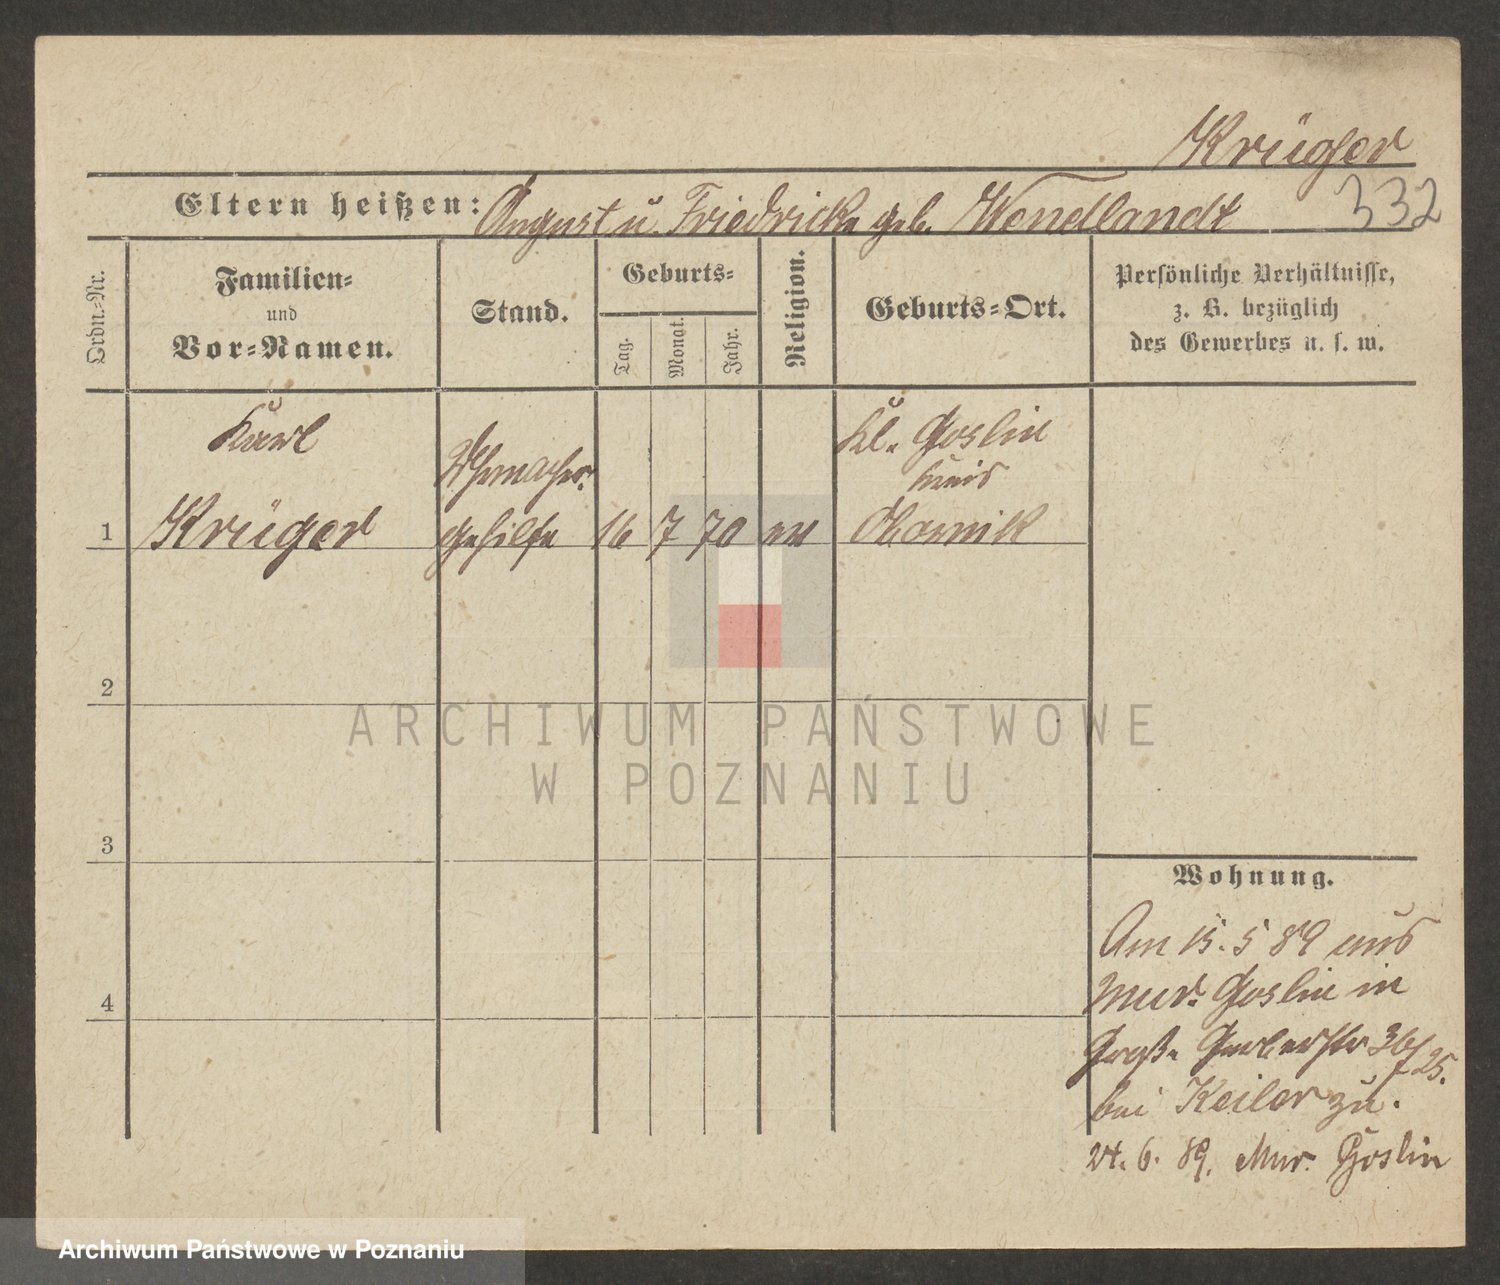 Krüger
332
Eltern heißen: August u. Friedricke geb. Wendlandt
Ordn.-Nr.
Familien-
und
Vor-Namen.
Stand.
Geburts-
Tag.
Monat.
Jahr.
Religion.
Geburts-Ort.
Persönliche Verhältnisse,
z. B. bezüglich
des Gewerbes u. s. w.
Karl
Kl. Goslin
Uhrmacher
Kreis
1 Krüger gehilfe 16 7 70 ev Obornik
2
ARCHIWUM PAŃSTWOWE
W POZNANIU
3
Wohnung.
Am 15. 5 89 aus
4
Mur. Goslin in
Große Gerberstr 36/25.
bei Keiler zu.
24. 6. 89. Mur. Goslin
Archiwum Państwowe w Poznaniu